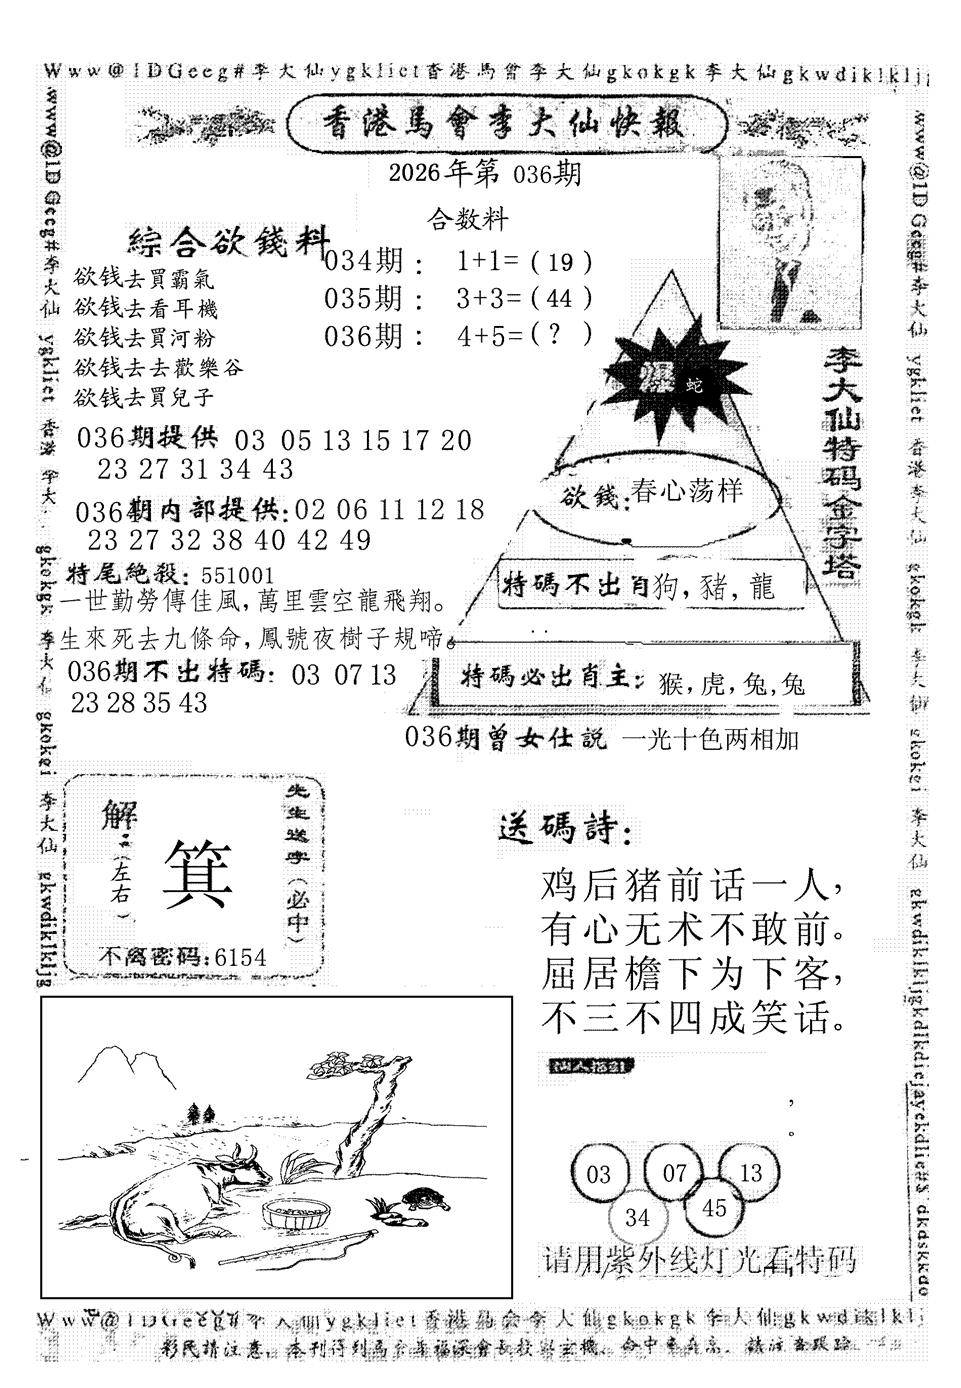 Www@1DGeeg#李大仙ygkliet香港馬會李大仙gkokgk李大仙gkwdiklkljg
香港馬會李大仙快報
2026年第 036期
合数料
綜合欲錢料
034期： 1+1=（19）
035期： 3+3=（44）
036期： 4+5=（?）
欲钱去買霸氣
欲钱去看耳機
欲钱去買河粉
欲钱去去歡樂谷
欲钱去買兒子
爆 蛇
李大仙特码金字塔
036期提供 03 05 13 15 17 20
23 27 31 34 43
欲錢:春心荡样
036期内部提供:02 06 11 12 18
23 27 32 38 40 42 49
特尾絶殺: 551001
特碼不出肖狗, 豬, 龍
一世勤勞傳佳風,萬里雲空龍飛翔。
生來死去九條命,鳳號夜樹子規啼。
036期不出特碼: 03 07 13
23 28 35 43
特碼必出肖主: 猴, 虎, 兔, 兔
036期曾女仕説 一光十色两相加
先生送字(必中)
解:(左右)
箕
不离密码:6154
送碼詩:
鸡后猪前话一人,
有心无术不敢前。
屈居檐下为下客,
不三不四成笑话。
,
。
03 07 13
34 45
请用紫外线灯光看特码
www@1DGeeg#李大仙 ygkliet 香港 李大仙 gkokgk 李大仙 gkokei 李大仙 gkwdiklkljg
www@1DGeeg#李大仙 ygkliet 香港李大仙 gkokgk 李大仙 gkokei 李大仙 gkwdiklkljgkdlkdiejayekdlie#$ dkdskkdo
Www@1DGeeg#李大仙ygkliet香港馬会李大仙gkokgk李大仙gkwdiklklj
彩民請注意，本刊得到馬会